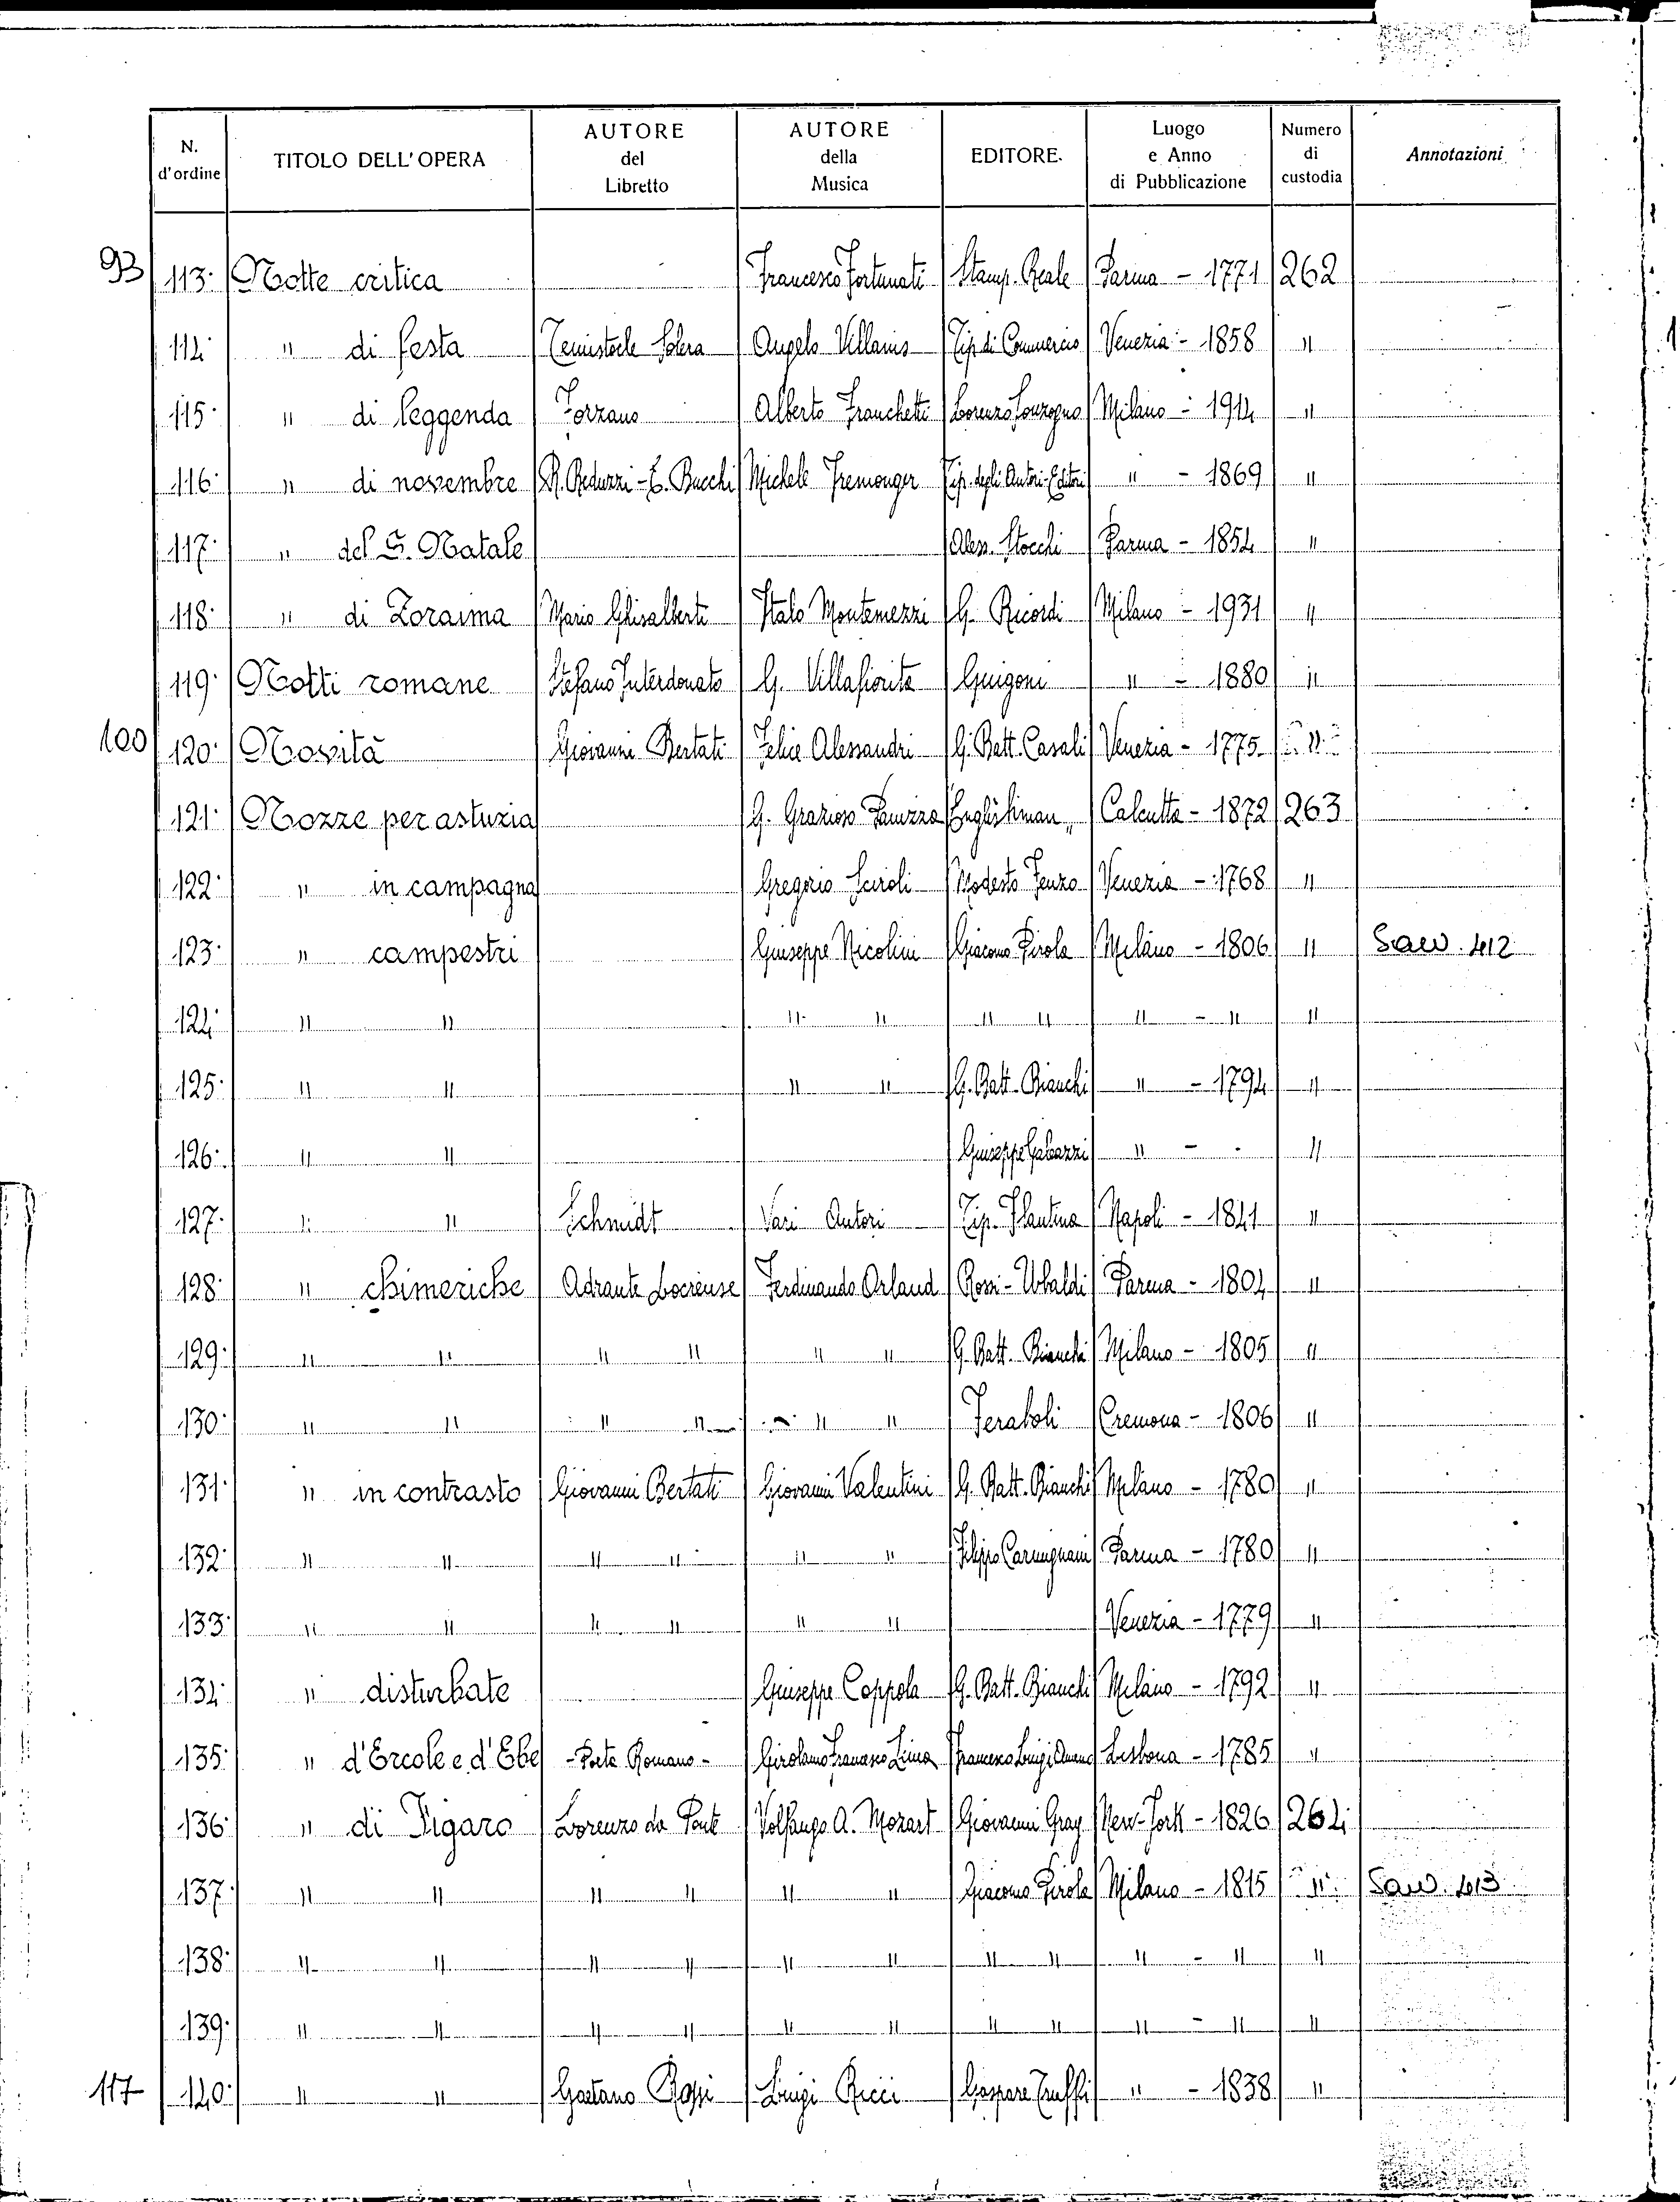 N. d'ordine | TITOLO DELL'OPERA | AUTORE del Libretto | AUTORE della Musica | EDITORE. | Luogo e Anno di Pubblicazione | Numero di custodia | Annotazioni
93 | 113· | Notte critica | | Francesco Fortunati | Stamp. Reale | Parma - 1771 | 262
114· | " di festa | Temistocle Solera | Angelo Villanis | Tip. di Commercio | Venezia - 1858 | "
115· | " di leggenda | Forzano | Alberto Franchetti | Lorenzo Sonzogno | Milano - 1914 | "
116· | " di novembre | R. Reduzzi - E. Bucchi | Michele Fremonger | Tip. degli Autori-Editori | " - 1869 | "
117· | " del S. Natale | | | Aless. Stocchi | Parma - 1854 | "
118· | " di Zoraima | Mario Ghisalberti | Italo Montemezzi | G. Ricordi | Milano - 1931 | "
119· | Notti romane | Stefano Interdonato | G. Villafiorita | Guigoni | " - 1880 | "
100 | 120· | Novità | Giovanni Bertati | Felice Alessandri | G. Batt. Casali | Venezia - 1775 | "
121· | Nozze per astuzia | | G. Grazioso Panizza | "Englishman" | Calcutta - 1872 | 263
122· | " in campagna | | Gregorio Sciroli | Modesto Fenzo | Venezia - 1768 | "
123· | " campestri | | Giuseppe Nicolini | Giacomo Pirola | Milano - 1806 | " | Saw. 412
124· | " " | | " " | " " | " - " | "
125· | " " | | " " | G. Batt. Bianchi | " - 1794 | "
126· | " " | | | Giuseppe Galeazzi | " - | "
127· | " " | Schmidt | Vari Autori | Tip. Flautina | Napoli - 1841 | "
128· | " chimeriche | Adrante Locrense | Ferdinando Orland | Rossi-Ubaldi | Parma - 1804 | "
129· | " " | " " | " " | G. Batt. Bianchi | Milano - 1805 | "
130· | " " | " " | " " | Feraboli | Cremona - 1806 | "
131· | " in contrasto | Giovanni Bertati | Giovanni Valentini | G. Batt. Bianchi | Milano - 1780 | "
132· | " " | " " | " " | Filippo Carmignani | Parma - 1780 | "
133· | " " | " " | " " | | Venezia - 1779 | "
134· | " disturbate | | Giuseppe Coppola | G. Batt. Bianchi | Milano - 1792 | "
135· | " d'Ercole e d'Ebe | - Poeta Romano - | Girolamo Francesco Lima | Francesco Luigi | Lisbona - 1785 | "
136· | " di Figaro | Lorenzo da Ponte | Volfango A. Mozart | Giovanni Gray | New-York - 1826 | 264
137· | " " | " " | " " | Giacomo Pirola | Milano - 1815 | " | Saw. 413
138· | " " | " " | " " | " " | " - " | "
139· | " " | " " | " " | " " | " - " | "
117 | 140· | " " | Gaetano Rossi | Luigi Ricci | Gaspare Truffi | " - 1838 | "